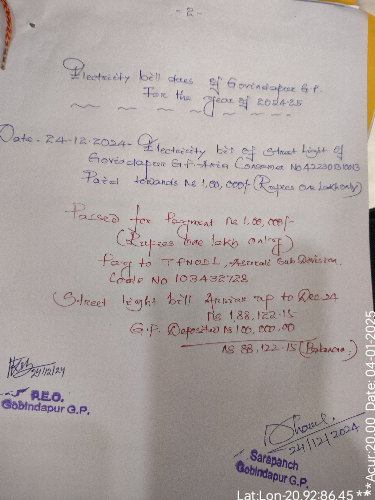 - 2 -
Electricity bill dues of Govindapur G.P.
For the year of 2024-25
Date - 24-12-2024 - Electricity bill of Street light of
Govindapur G.P. Area Consumer No
Paid towards Rs 1,00,000/- (Rupees one lakh only)
Passed for Payment Rs 1,00,000/-
(Rupees one lakh only)
Pay to TPNODL, Sub Division.
Code No 103432728
Street light bill up to Dec 24
Rs 1,88,122.15
G.P. Deposited Rs 1,00,000.00
Rs 88,122.15 (Balance.)
24/12/24
P.E.O.
Gobindapur G.P.
24/12/2024
Sarapanch
Gobindapur G.P.
Lat:Lon-20.92:86.45 ***Acu:20.00 Data: 04-01-2025